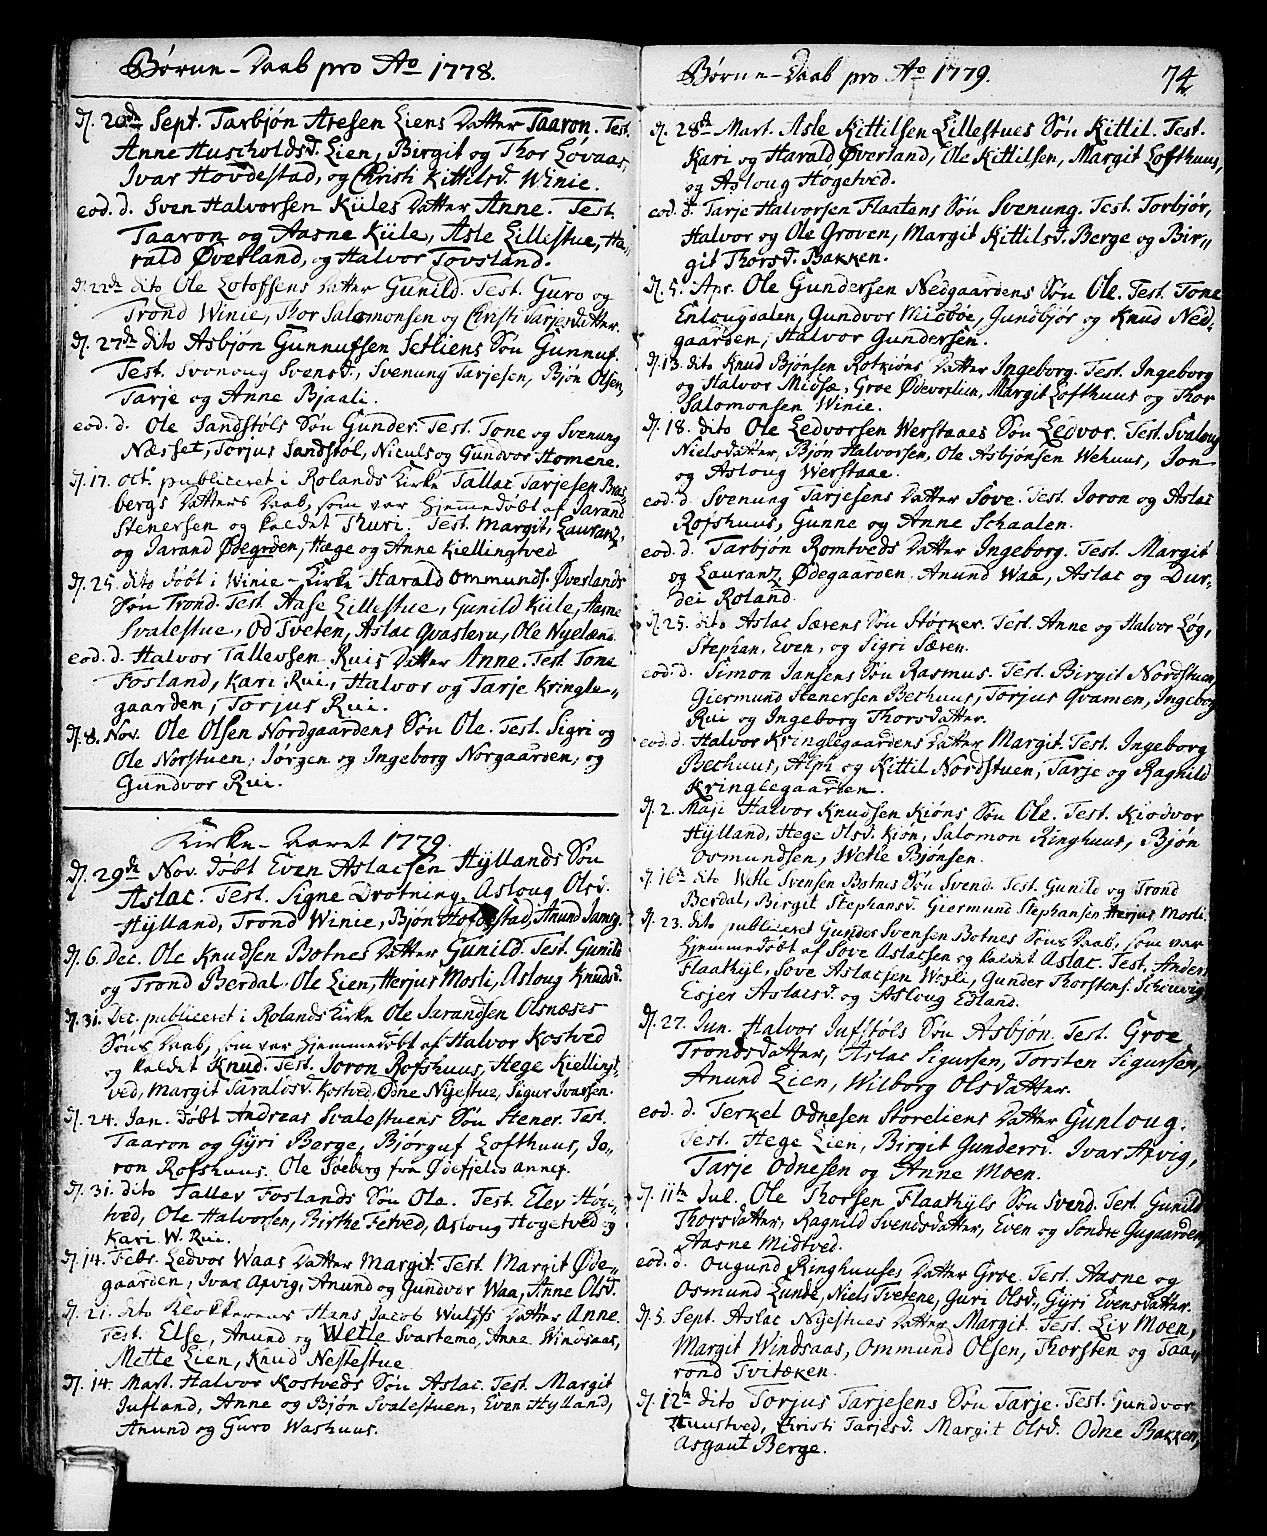 Børne-Daab pro Ao 1778.
d. 20de Sept. Tarbjøn Aresen Liens Datter Taaron. Test.
Anne Huscholdsd. Lien, Birgit og Thor Løvaas,
Ivar Hovdestad, og Christi Kittilsd. Winie.
eod. d. Sven Halvorsen Kules Datter Anne. Test.
Taaron og Aasne Kule, Asle Lillestue, Ha-
rald Øverland, og Halvor Tovsland.
d. 22de dito Ole Lotofsens Datter Gunild. Test. Guro og
Trond Winie, Thor Salomonsen og Christi Tarjesdatter.
d. 27de dito Asbjøn Gunnufsen Jetliens Søn Gunnuf.
Test. Svonoug Svensd., Svenung Tarjesen, Bjøn Olsen,
Tarje og Anne Bjaali.
eod. d. Ole Sandstøls Søn Gunder. Test. Tone og Svenung
Næsset, Torjus Sandstøl, Niculs og Gundvor Homene.
d. 17. Oct. publiceret i Rolands Kirke Tallac Tarjesen Bras-
bergs Datters Daab, som var hjemmedøbt af Jarand
Stenersen og kaldet Thuri. Test. Margit, Lauranz,
og Jarand Ødegrden, Hæge og Anne Kiellingtved
d. 25. dito døbt i Winie-Kirke Harald Ommunds. Øverlands
Søn Trond. Test. Aase Lillestue, Gunild Kule, Aasne
Svalestue, Od Tveten, Aslac Qvasteru, Ole Nyeland.
eod. d. Halvor Tallevsen Ruis Datter Anne. Test. Tone
Fosland, Kari Rui, Halvor og Tarje Kringle-
gaarden, Torjus Rui.
d. 8. Nov. Ole Olsen Nordgaardens Søn Ole. Test. Sigri og
Ole Norstuen, Jørgen og Ingeborg Norgaarden, og
Gundvor Rui.
Kirke-Aaret 1779.
d. 29de Nov. døbt Even Aslacsen Hyllands Søn
Aslac. Test. Signe Drotning, Asloug Olsd.
Hylland, Trond Winie, Bjøn Hofdestad, Anund Jamsg.
d. 6. Dec. Ole Knudsen Botnes Datter Gunild. Test. Gunild
og Trond Berdal. Ole Lien, Herjus Mosli, Asloug Knudsd.
d. 31. Dec. publiceret i Rolands Kirke Ole Jarandsen Olsnæses
Søns Daab, som var hjemmedøbt af Halvor Kostved
og kaldet Knud. Test. Joron Rofshuus, Hege Kielling-
tved, Margit Taraldsd. Kostved, Odne Nyestue, Sigur Ivarsen.
d. 24. Jan. døbt Andreas Svalestuens Søn Stener. Test.
Taaron og Gyri Berge, Bjørguf Lofthuus, Jo-
ron Rofshuus. Ole Søeberg fra Ødefjelds annex.
d. 31. dito Tallev Foslands Søn Ole. Test. Elev Høg-
tved, Ole Halvorsen, Birthe Fetved, Asloug Hogetved og
Kari W. Rui.
d. 14. Febr. Ledvor Waas Datter Margit. Test. Margit Øde-
gaarden, Ivar Apvig, Anund og Gundvor Waa, Anne Olsd.
d. 21. dito Klokkerens Hans Jacob Wulfs Datter Anne.
Test. Else, Anund og Wetle Svartemo, Anne Windsaas,
Mette Lien, Knud Nestestue.
d. 14. Mart. Halvor Kostveds Søn Aslac. Test. Margit
Jufland, Anne og Bjøn Svalestuen, Even Hylland,
Anund og Guro Washuus.
Børne-Daab pro Ao 1779. 74
d. 28de Mart. Asle Kittilsen Lillestues Søn Kittil. Test.
Kari og Harald Øverland, Ole Kittilsen, Margit Lofthuus,
og Asloug Hogetved.
eod. d. Tarje Halvorsen Flaatens Søn Svenung. Test. Torbjør,
Halvor og Ole Groven, Margit Kittilsd. Berge og Bir-
git Thorsd. Bakken.
d. 5. Apr. Ole Gundersen Nedgaardens Søn Ole. Test. Tone
Enlougdalen, Gundvor Midbøe, Gundbjør og Knud Ned-
gaarden, Halvor Gundersen.
d. 13. dito Knud Bjønsen Rotkions Datter Ingeborg. Test. Ingeborg
og Halvor Midsæ, Groe Ødevorlien, Margit Lofthuus og Thor
Salomonsen Winie.
d. 18. dito Ole Ledvorsen Werstaaes Søn Ledvor. Test. Svaloug
Nielsdatter, Bjøn Halvorsen, Ole Asbjønsen Wehuus, Jon
og Asloug Werstaae.
eod. d. Svenung Tarjesens Datter Sove. Test. Joron og Aslac
Rofshuus, Gunne og Anne Schaalen.
eod. d. Tarbjøn Romtveds Datter Ingeborg. Test. Margit
og Lauranz Ødegaarden. Anund Waa, Aslac og Dur-
dei Roland.
d. 25. dito Aslac Særens Søn Størker. Test. Anne og Halvor Løg,
Stephan, Even, og Sigri Særen.
eod. d. Simon Jansens Søn Rasmus. Test. Birgit Nordstuen,
Giermund Stenersen Bechuus, Torjus Qvamen, Ingeborg
Rui og Ingeborg Thorsdatter.
eod. d. Halvor Kringlegaardens Datter Margit. Test. Ingeborg
Bechuus, Alph og Kittil Nordstuen, Tarje og Ragnild
Kringlegaarden.
d. 2. Maji Halvor Knudsen Kiøns Søn Ole. Test. Kiodvor
Hylland, Hege Olsd. Kjøn, Salomon Ringhuus, Bjøn
Osmundsen, Wetle Bjønsen.
d. 16de dito Wetle Svensen Botnes Søn Svend. Test. Gunild og Trond
Berdal, Birgit Stephansd. Giermund Stephansen Herjus Mosli.
d. 23. dito publiceret Gunder Svensen Botnes Søns Daab, som var
hjemmedøbt af Sove Aslacsen og kaldet Aslac. Test. Anders
Flaathyl, Sove Aslacsen Wesli, Gunder Thorstens. Scheuvig
Esjer Aslacsd. og Asloug Edland.
d. 27. Jun. Halvor Jufstøls Søn Asbjøn. Test. Groe
Trondsdatter, Aslac Sigursen, Torsten Sigursen,
Anund Lien, Wilborg Olsdatter.
eod. d. Terkel Odnesen Storeliens Datter Gunloug.
Test. Hege Lien, Birgit Gundersd. Ivar Apvig,
Tarje Odnesen og Anne Moen.
d. 11te Jul. Ole Thorsen Flaathyls Søn Svend. Test. Gunild
Thorsdatter, Ragnild Svendsdatter, Even og Sondre Gugaarden,
Aasne Midtved.
eod. d. Ougund Ringhuuses Datter Groe. Test. Aasne og
Osmund Lunde, Niels Tvetene, Guri Olsd, Gyri Evensdatter.
d. 5. Sept. Aslac Nyestues Datter Margit. Test. Liv Moen,
Margit Windsaas, Ommund Olsen, Thorsten og Taa-
rond Tvitæken.
d. 12te dito Torjus Tarjesens Søn Tarje. Test. Gundvor
Huustved, Christi Tarjesd. Margit Olsd. Odne Bakken,
Asgaut Berge.